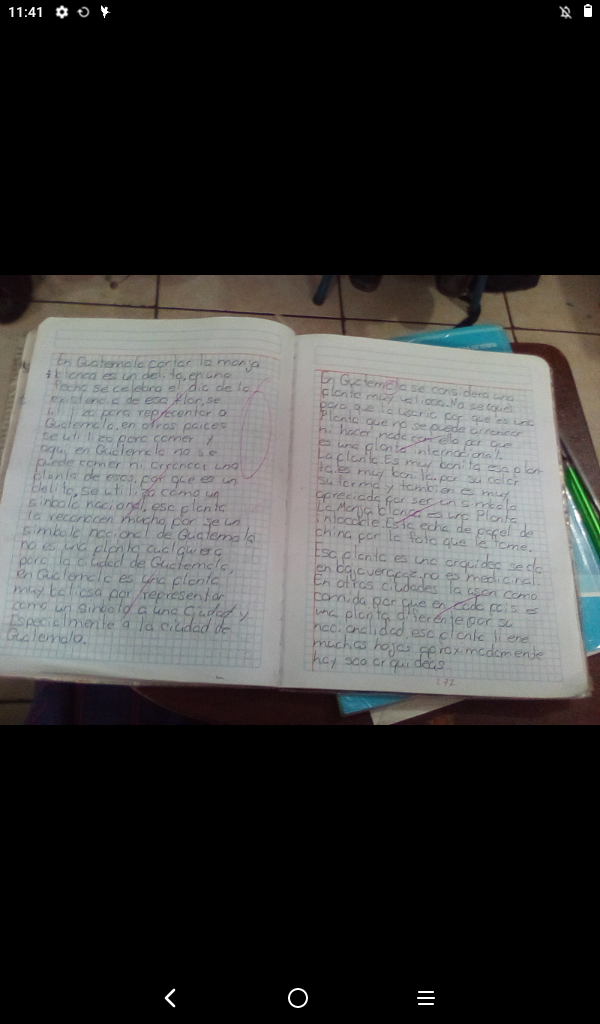 11:41
En Guatemala cortar la monja
blanca es un delito, en una
fecha se celebra el dia de la
existencia de esa flor, se
utiliza para representar a
Guatemala, en otros paices
se utiliza para comer y
aqui en Guatemala no se
puede comer ni arrancar una
planta de esas, por que es un
delito, se utiliza como un
simbolo nacional, esa planta
la reconocen mucho por se un
simbolo nacional de Guatemala
no es una planta cualquiera
para la ciudad de Guatemala,
en Guatemala es una planta
muy baliosa por representar
como un singolo a una Ciudad y
Especialmente a la ciudad de
Guatemala.
En Guatemala se considera una
planta muy valiosa. No se que
para que la usaria por que es una
Planta que no se puede arrancar
ni hacer nada con ella por que
es una planta internacional.
La planta Es muy bonita esa plan-
ta es muy bonita por su color
su forma y tambien es muy
apreciada por ser un simbolo
La Monja blanca es una Planta
intocable. Esta echa de papel de
china por la foto que le tome.
Esa planta es una arquidea se da
en bajaverapaz, no es medicinal.
En otras ciudades la usan como
comida por que en cada pais es
una planta diferente por su
nacionalidad, esa planta tiene
muchas hojas aproximadamente
hay 300 arquideas